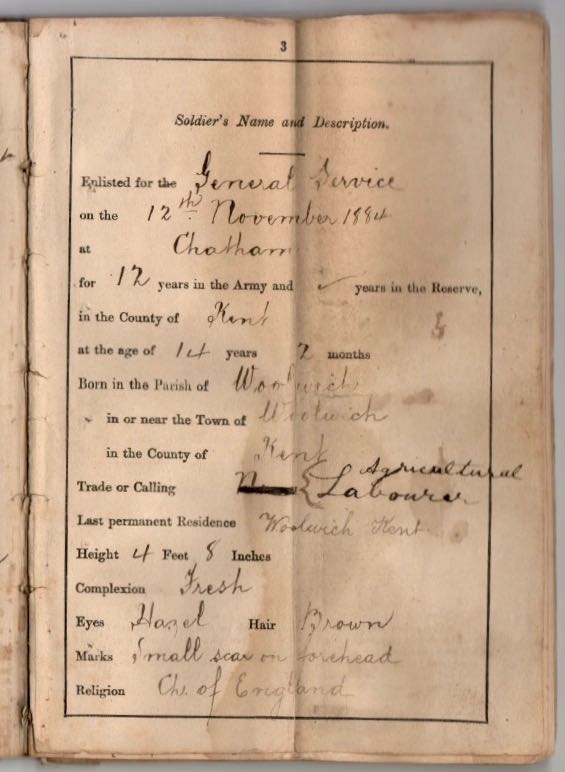 3
Soldier's Name and Description.
Enlisted for the General Service
on the 12th November 1884
at Chatham
for 12 years in the Army and years in the Reserve,
in the County of Kent
at the age of 14 years 2 months
Born in the Parish of Woolwich
in or near the Town of Woolwich
in the County of Kent
Agricultural
Trade or Calling Labourer
Last permanent Residence Woolwich Kent
Height 4 Feet 8 Inches
Complexion Fresh
Eyes Hazel Hair Brown
Marks Small scar on forehead
Religion Ch. of England